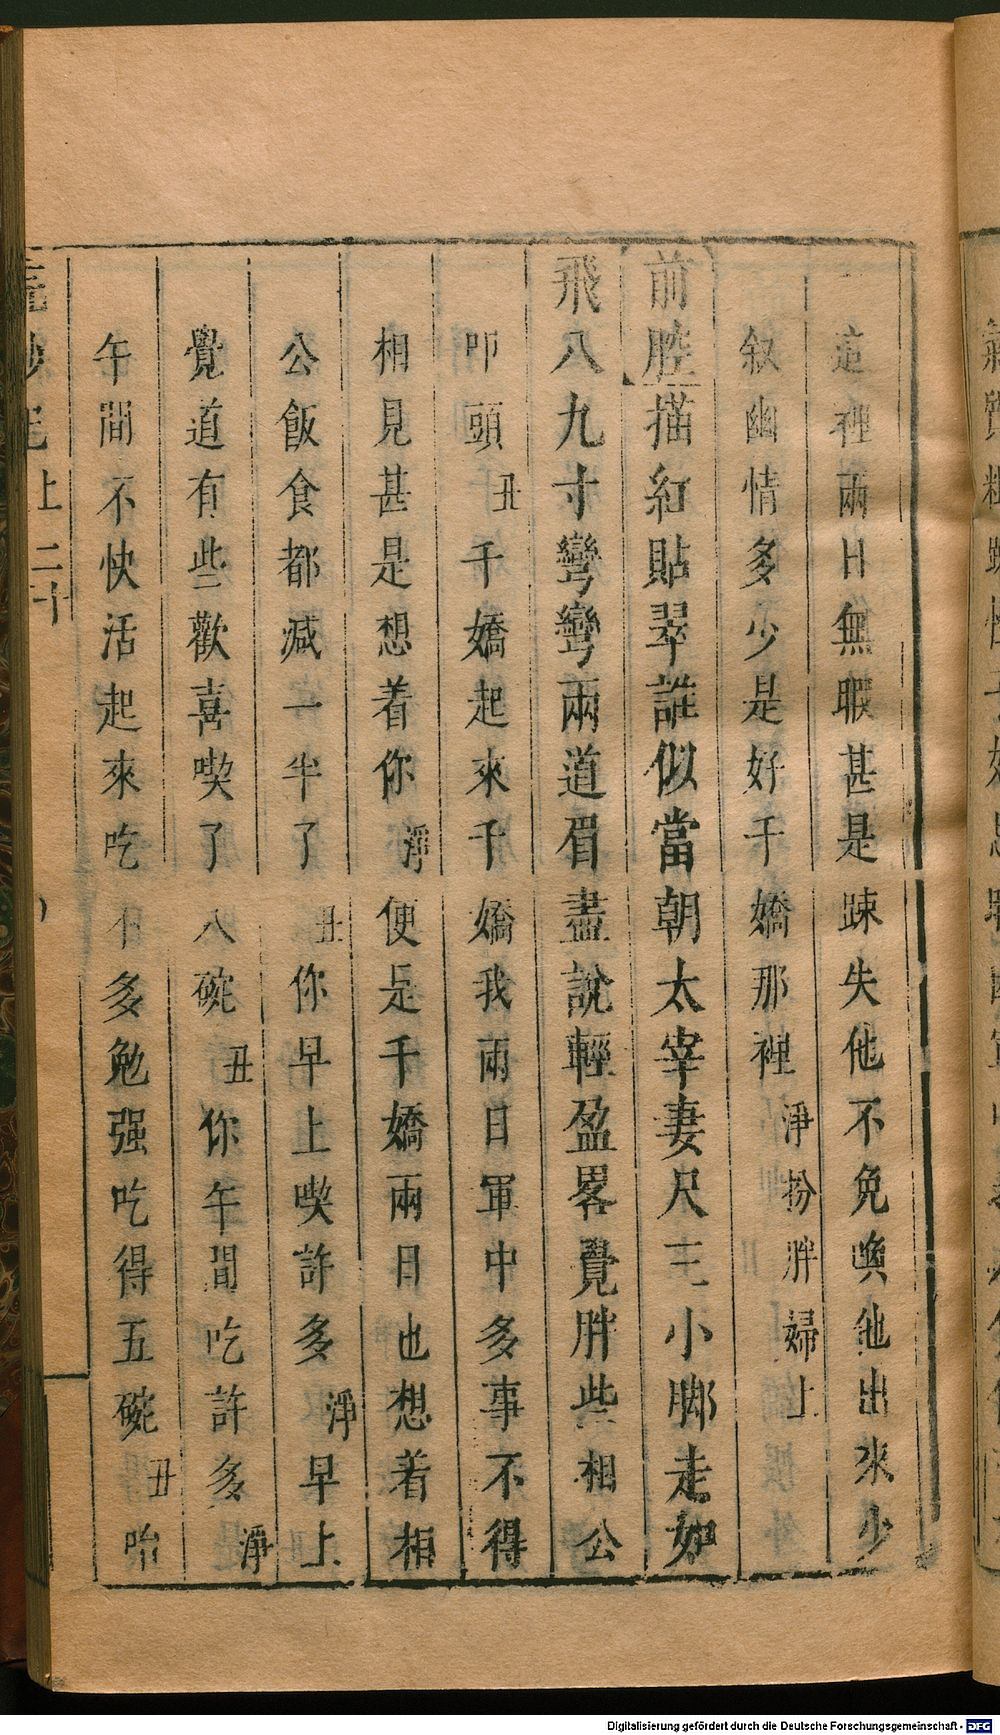 這裡兩日無暇甚是踈失他不免喚他出來少
叙幽情多少是好千嬌那裡淨扮胖婦上
前腔描紅貼翠誰似當朝太宰妻尺三小脚走如
飛八九寸彎彎兩道眉盡說輕盈畧覺胖些相公
叩頭丑千嬌起來千嬌我兩日軍中多事不得
相見甚是想着你淨便是千嬌兩日也想着相
公飯食都减一半了丑你早上喫許多淨早上
覺道有些歡喜喫了八碗丑你午間吃許多淨
午間不快活起來吃不多勉强吃得五碗丑哈
上二十
Digitalisierung gefördert durch die Deutsche Forschungsgemeinschaft - DFG